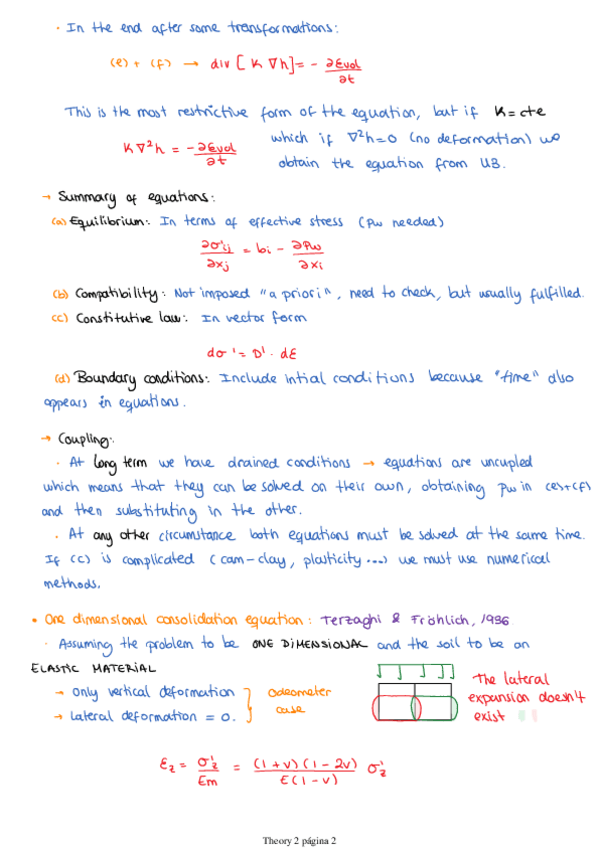 · In the end after some transformations:
(e) + (f) → div [ K ∇h] = - ∂εvol/∂t
This is the most restrictive form of the equation, but if K=cte
K∇²h = -∂εvol/∂t
which if ∇²h=0 (no deformation) we
obtain the equation from U3.
→ Summary of equations:
(a) Equilibrium: In terms of effective stress (Pw needed)
∂σ'ij/∂xj = bi - ∂Pw/∂xi
(b) Compatibility: Not imposed "a priori", need to check, but usually fulfilled.
(c) Constitutive law: In vector form
dσ' = D' · dε
(d) Boundary conditions: Include intial conditions because "time" also
appears in equations.
→ Coupling:
· At long term we have drained conditions → equations are uncupled
which means that they can be solved on their own, obtaining Pw in (e)+(f)
and then substituting in the other.
· At any other circumstance both equations must be solved at the same time.
If (c) is complicated (cam-clay, plasticity ...) we must use numerical
methods.
• One dimensional consolidation equation: Terzaghi & Fröhlich, 1936
· Assuming the problem to be ONE DIMENSIONAL and the soil to be an
ELASTIC MATERIAL
→ only vertical deformation
→ lateral deformation = 0.
Odeometer
case
The lateral
expansion doesn't
exist
εz = σ'z/Em = (1+ν)(1-2ν)/E(1-ν) σ'z
Theory 2 página 2